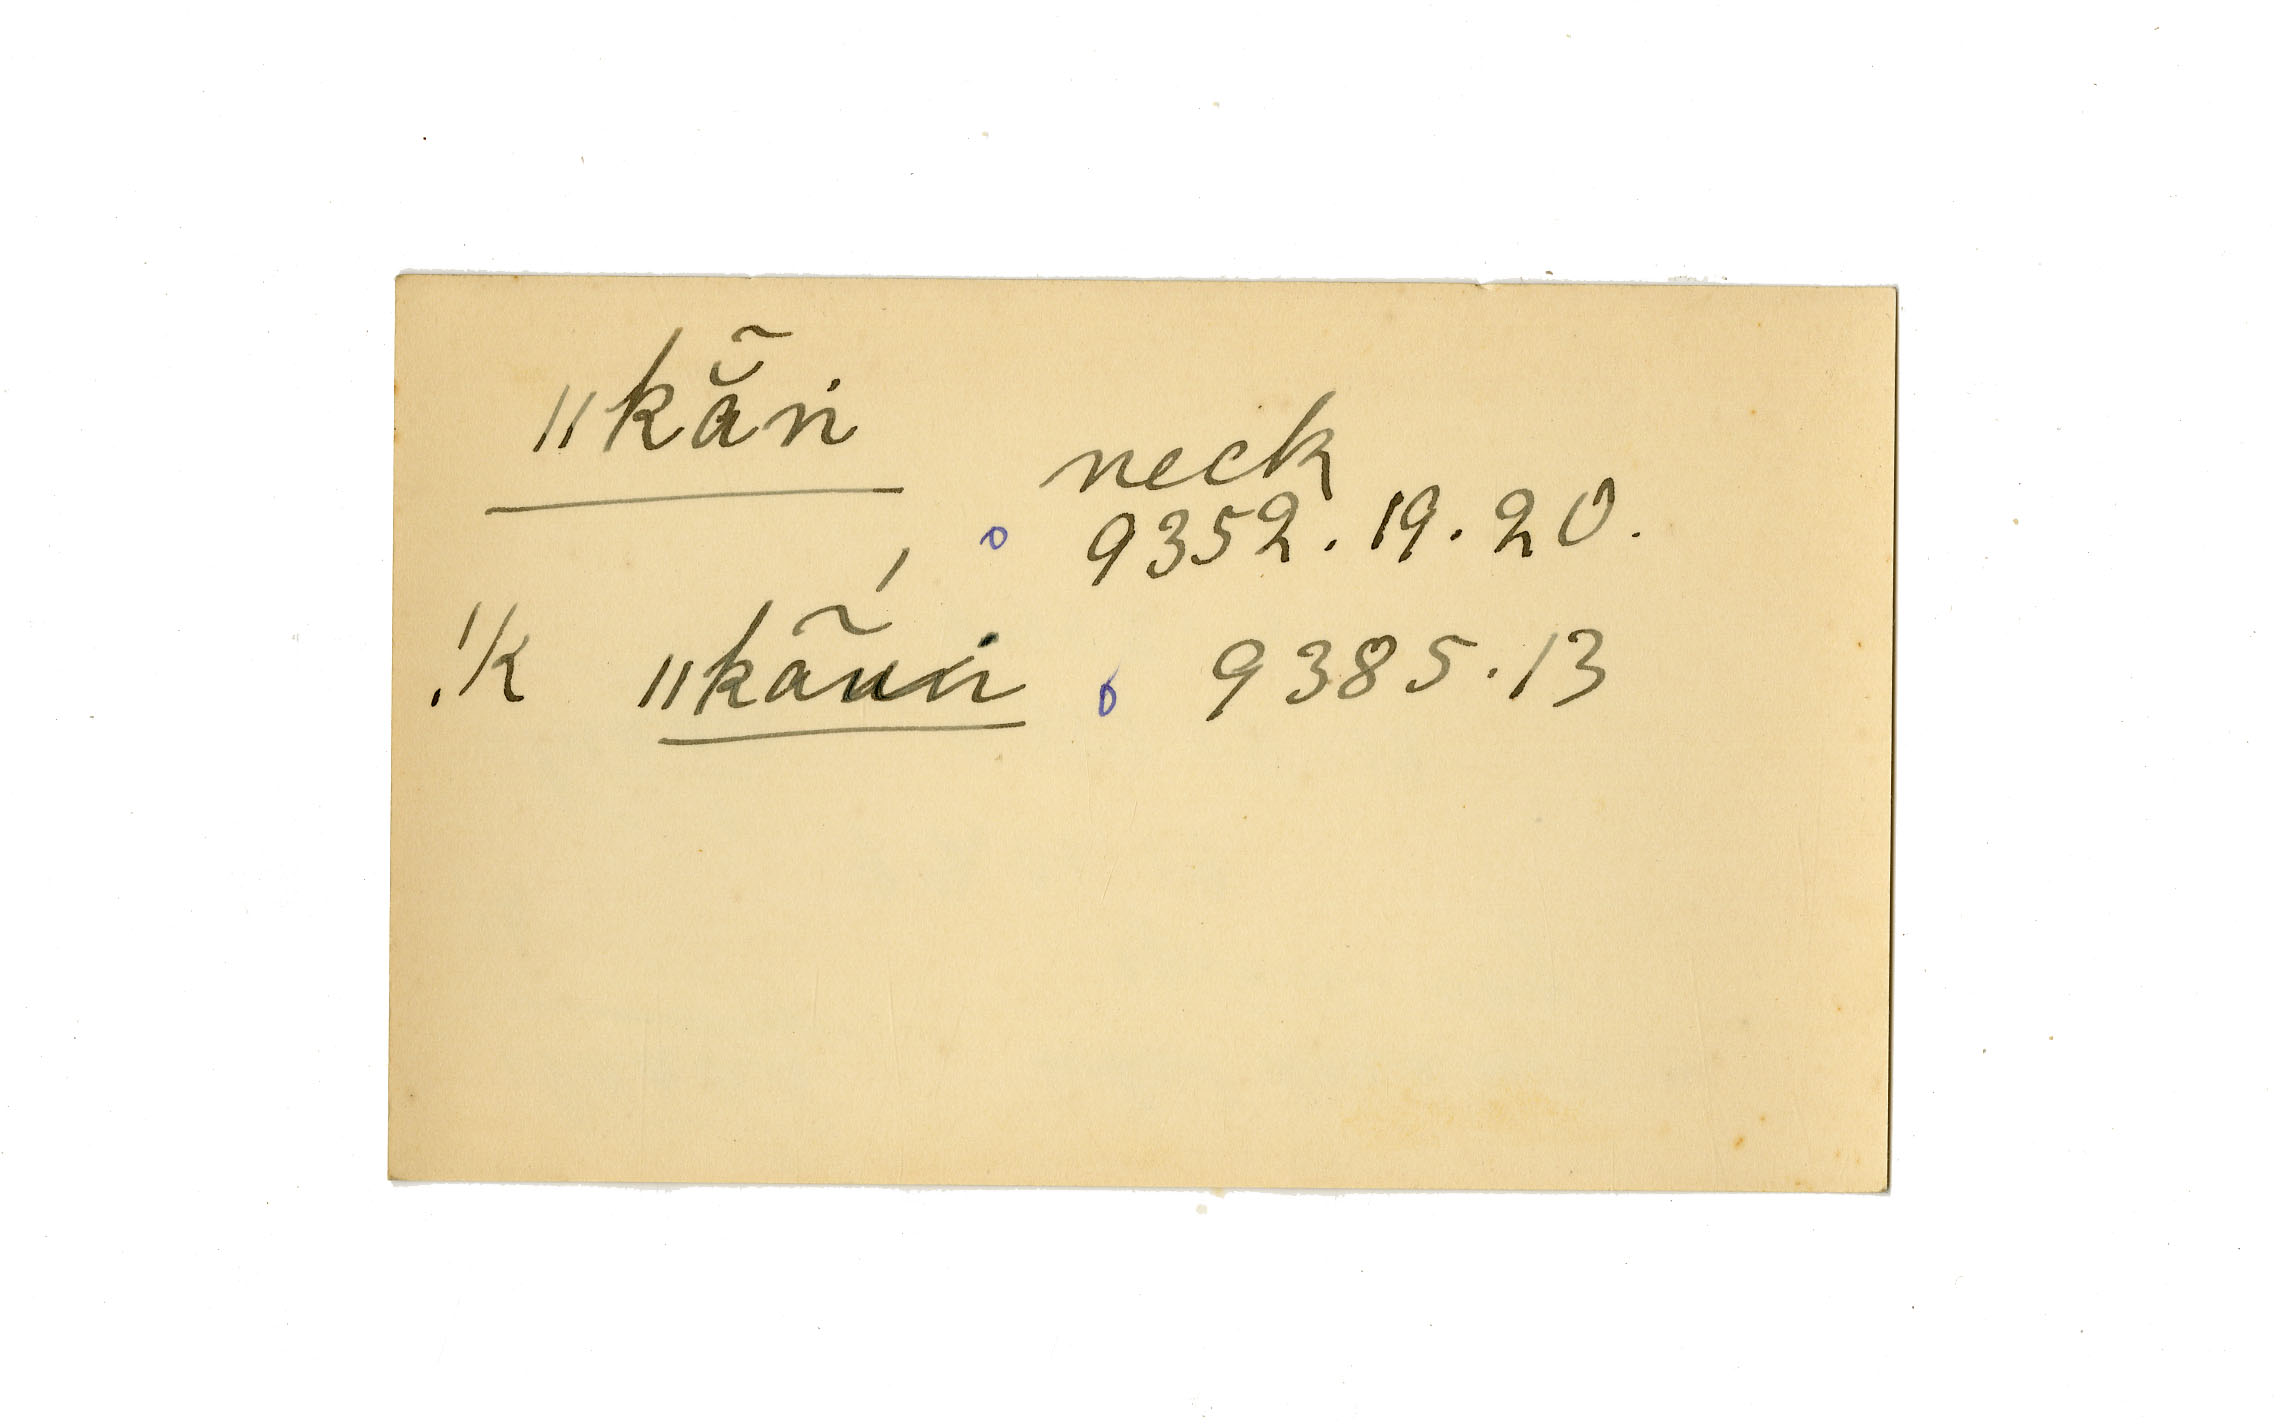 ǁkằ̃n
neck
9352.19.20.
!k ǁkã́u̇i 9385.13